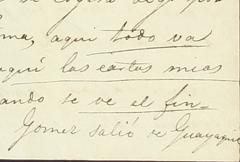 ma, aqui todo va
aquí las cartas mias
ando se ve el fin-
Gomez salió de Guayaquil